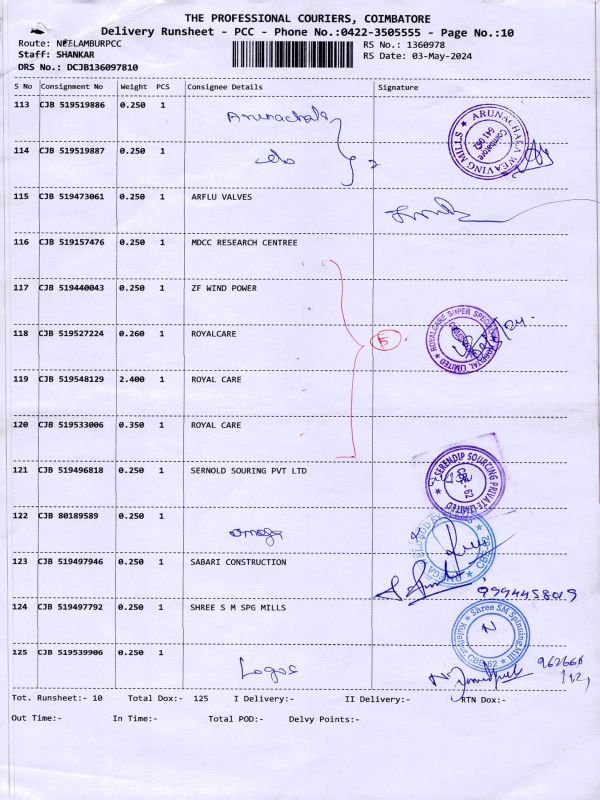 THE PROFESSIONAL COURIERS, COIMBATORE
Delivery Runsheet - PCC - Phone No.:0422-3505555 - Page No.:10
Route: NEELAMBURPCC RS No.: 1360978
Staff: SHANKAR RS Date: 03-May-2024
DRS No.: DCJB136097810
S No Consignment No Weight PCS Consignee Details Signature
113 CJB 519519886 0.250 1 Arunachala
114 CJB 519519887 0.250 1 do 2
ARUNACHALA WEAVING MILLS
Coimbatore
641 062
115 CJB 519473061 0.250 1 ARFLU VALVES
116 CJB 519157476 0.250 1 MDCC RESEARCH CENTREE
117 CJB 519440043 0.250 1 ZF WIND POWER
118 CJB 519527224 0.260 1 ROYALCARE 5
ROYALCARE SUPER SPECIALITY HOSPITAL LIMITED
119 CJB 519548129 2.400 1 ROYAL CARE
120 CJB 519533006 0.350 1 ROYAL CARE
121 CJB 519496818 0.250 1 SERNOLD SOURING PVT LTD
SERENDIP SOURCING PRIVATE LIMITED
122 CJB 80189589 0.250 1 omega
123 CJB 519497946 0.250 1 SABARI CONSTRUCTION
9994458019
124 CJB 519497792 0.250 1 SHREE S M SPG MILLS
Shree SM Spinning Mill
CBE-62
125 CJB 519539906 0.250 1 Logos
Tot. Runsheet:- 10 Total Dox:- 125 I Delivery:- II Delivery:- RTN Dox:-
Out Time:- In Time:- Total POD:- Delvy Points:-